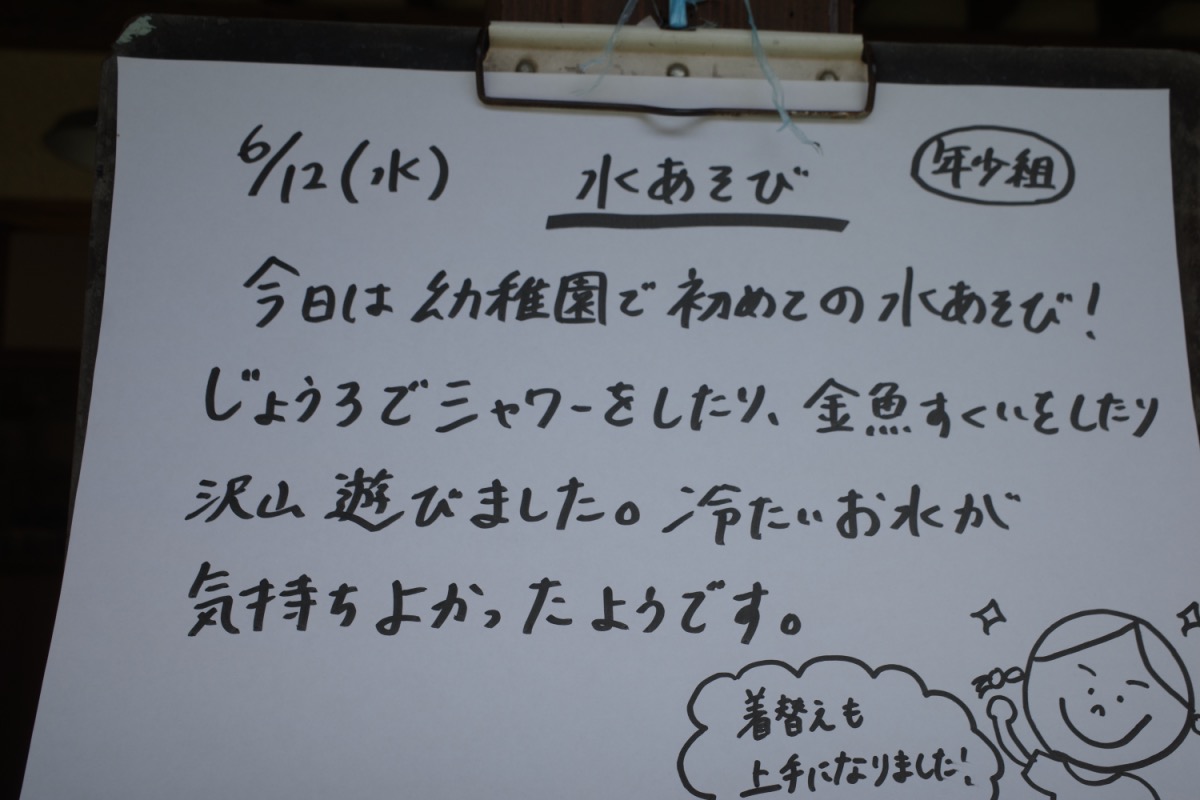 6/12(水) 水あそび 年少組
今日は幼稚園で初めての水あそび!
じょうろでシャワーをしたり、金魚すくいをしたり
沢山遊びました。冷たいお水が
気持ちよかったようです。
着替えも
上手になりました!